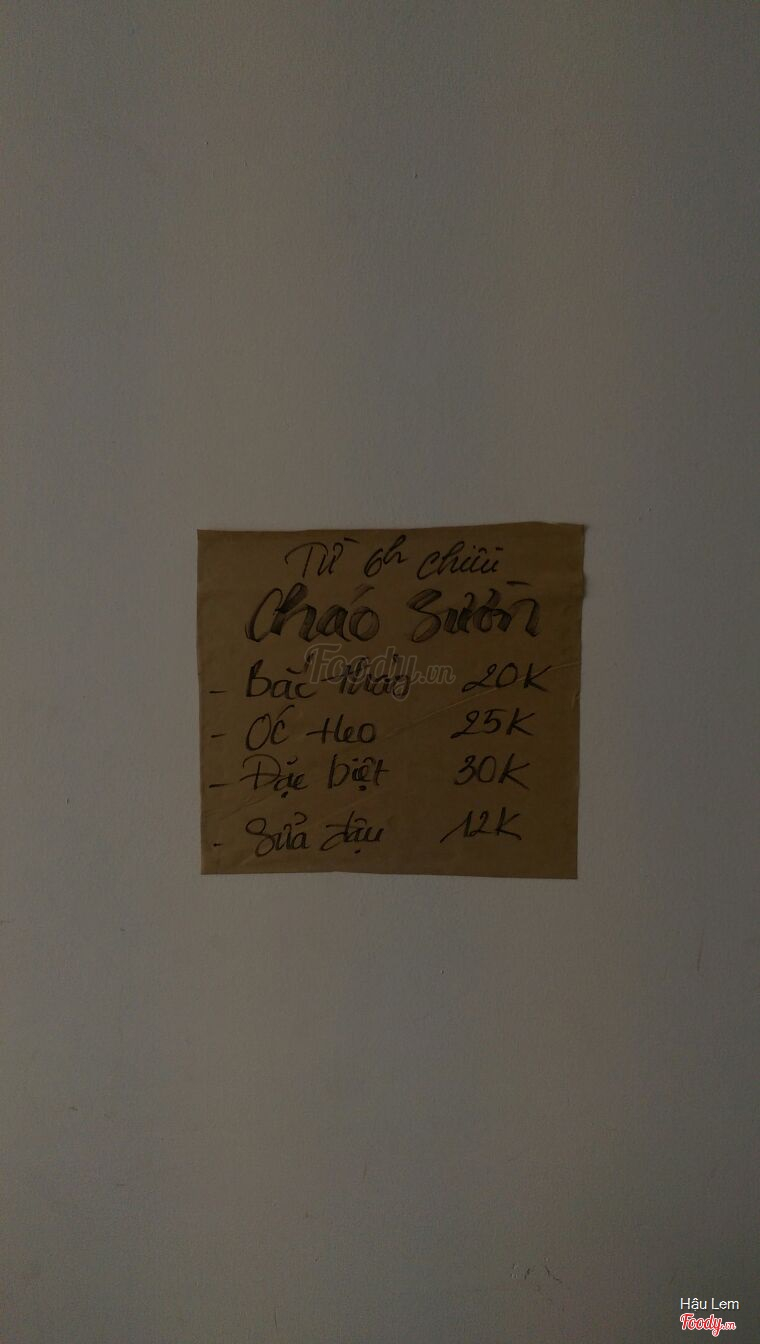 Từ 6h chiều
Cháo Sườn
- Bắc thảo 20K
- Óc heo 25K
- Đặc biệt 30K
- Sửa đậu 12K
Foody.vn
Hậu Lem
Foody.vn